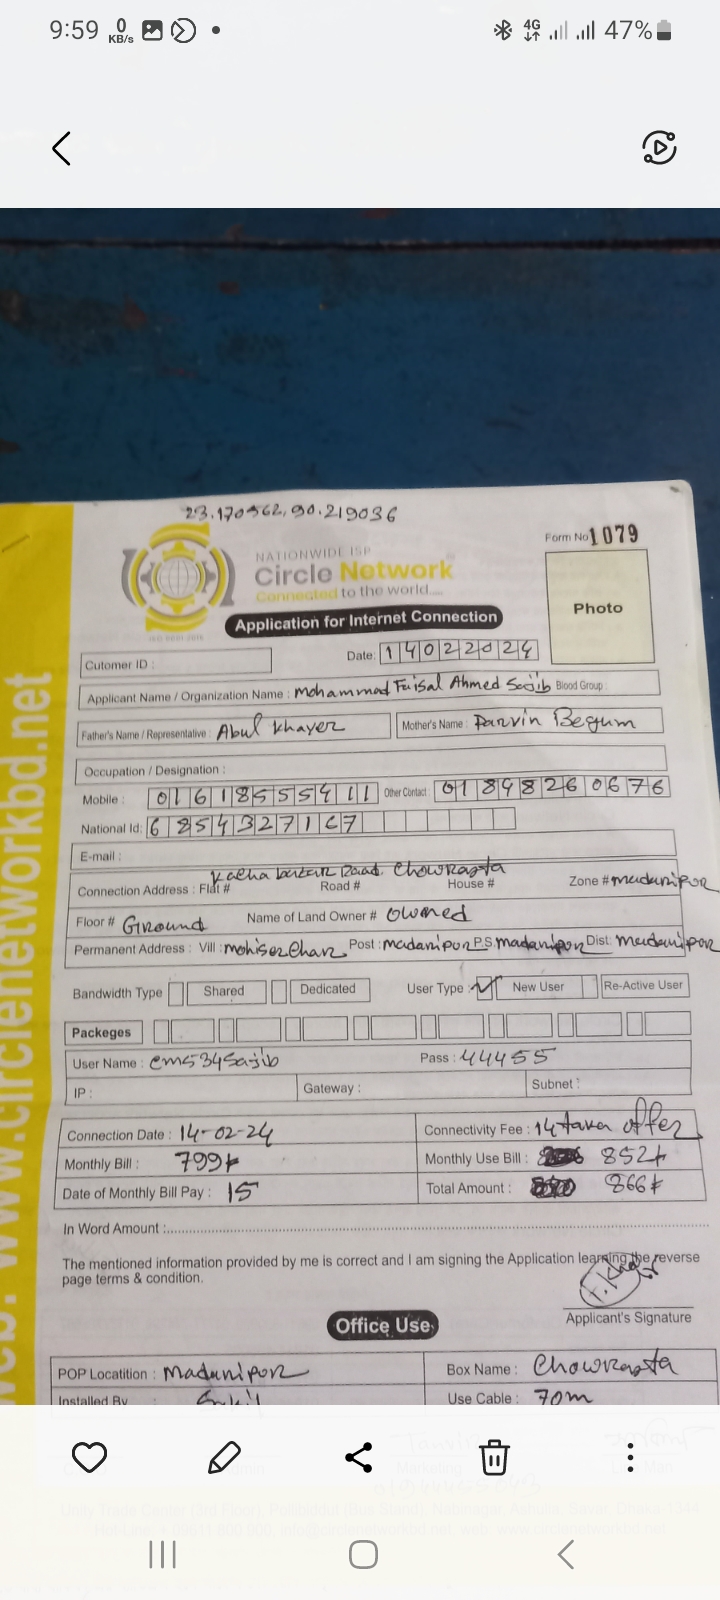 9:59 0 KB/s 4G 47%
23.170562,90.219036
NATIONWIDE ISP
Circle Network
Connected to the world....
Form No 1079
Photo
Application for Internet Connection
Date: 14022024
Cutomer ID :
Applicant Name / Organization Name : Mohammad Faisal Ahmed Sajib Blood Group :
Father's Name / Representative : Abul Khayer Mother's Name : Parvin Begum
Occupation / Designation :
Mobile : 01618555411 Other Contact : 01898260676
National Id: 6854327167
E-mail :
Katha bazar Road, Chowrasta
Connection Address : Flat # Road # House # Zone # madaripor
Floor # Ground Name of Land Owner # Owned
Permanent Address : Vill : mohiserchar Post : madaripor P.S madaripor Dist: Madaripor
Bandwidth Type Shared Dedicated User Type : New User Re-Active User
Packeges
User Name : cms34Sajib Pass : 44455
IP : Gateway : Subnet :
Connection Date : 14-02-24 Connectivity Fee : 14 taka offer
Monthly Bill : 799৳ Monthly Use Bill : 852৳
Date of Monthly Bill Pay : 15 Total Amount : 866৳
In Word Amount :
The mentioned information provided by me is correct and I am signing the Application learning the reverse
page terms & condition.
Applicant's Signature
Office Use
POP Locatition : Madaripor Box Name : Chowrasta
Installed By Use Cable : 70m
web: www.circlenetworkbd.net